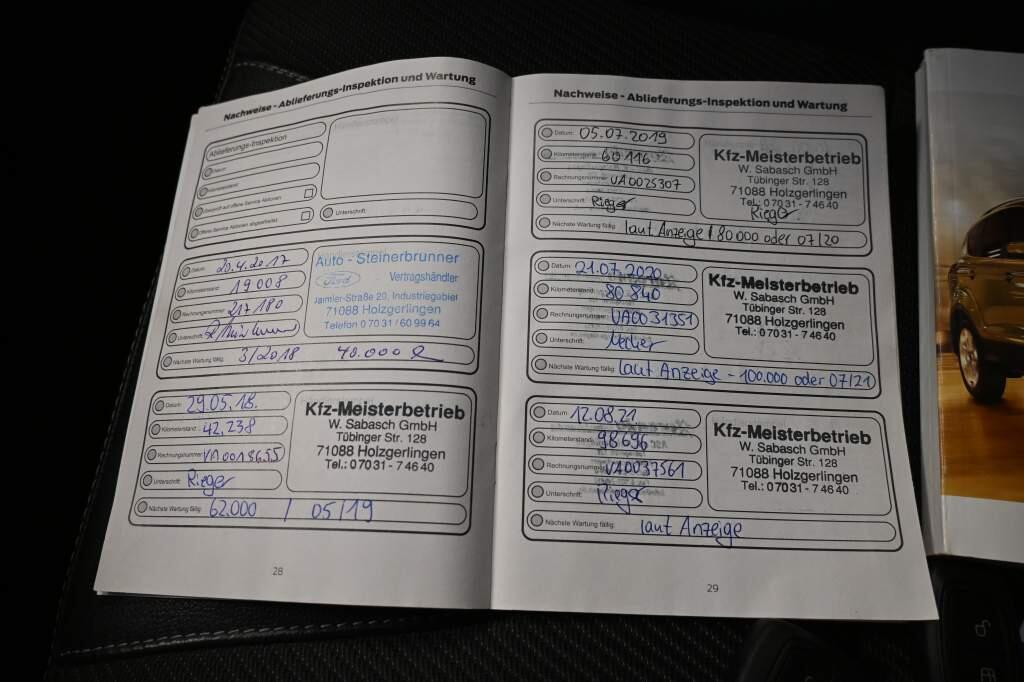 Nachweise - Ablieferungs-Inspektion und Wartung
Ablieferungs-Inspektion
Datum:
Kilometerstand:
Geprüft auf offene Service Aktionen:
Offene Service Aktionen abgearbeitet:
Händlerstempel
Unterschrift:
Datum: 20.4.2017
Kilometerstand: 19008
Rechnungsnummer: 217180
Unterschrift:
Nächste Wartung fällig: 3/2018 40.000
Auto - Steinerbrunner
Ford Vertragshändler
Jaimler-Straße 20, Industriegebiet
71088 Holzgerlingen
Telefon 0 70 31 / 60 99 64
Datum: 29.05.18.
Kilometerstand: 42.238
Rechnungsnummer: VA0018655
Unterschrift: Rieger
Nächste Wartung fällig: 62.000 / 05/19
Kfz-Meisterbetrieb
W. Sabasch GmbH
Tübinger Str. 128
71088 Holzgerlingen
Tel.: 0 70 31 - 7 46 40
28
Nachweise - Ablieferungs-Inspektion und Wartung
Datum: 05.07.2019
Kilometerstand: 60116
Rechnungsnummer: VA0025307
Unterschrift: Rieger
Nächste Wartung fällig: laut Anzeige / 80.000 oder 07/20
Kfz-Meisterbetrieb
W. Sabasch GmbH
Tübinger Str. 128
71088 Holzgerlingen
Tel.: 0 70 31 - 7 46 40
Rieger
Datum: 21.07.2020
Kilometerstand: 80840
Rechnungsnummer: VA0031351
Unterschrift:
Nächste Wartung fällig: laut Anzeige - 100.000 oder 07/21
Kfz-Meisterbetrieb
W. Sabasch GmbH
Tübinger Str. 128
71088 Holzgerlingen
Tel.: 0 70 31 - 7 46 40
Datum: 12.08.21
Kilometerstand: 98696
Rechnungsnummer: VA0037561
Unterschrift: Rieger
Nächste Wartung fällig: laut Anzeige
Kfz-Meisterbetrieb
W. Sabasch GmbH
Tübinger Str. 128
71088 Holzgerlingen
Tel.: 0 70 31 - 7 46 40
29